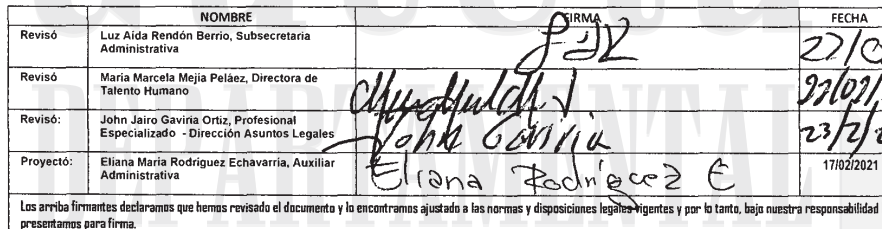 NOMBRE FIRMA FECHA
Revisó Luz Aida Rendón Berrio, Subsecretaria
Administrativa
22/0
Revisó Maria Marcela Mejia Peláez, Directora de
Talento Humano
22/02/
Revisó: John Jairo Gaviria Ortiz, Profesional
Especializado - Dirección Asuntos Legales
John Gaviria 23/2/2
Proyectó: Eliana Maria Rodriguez Echavarria, Auxiliar
Administrativa
Eliana Rodríguez E 17/02/2021
Los arriba firmantes declaramos que hemos revisado el documento y lo encontramos ajustado a las normas y disposiciones legales vigentes y por lo tanto, bajo nuestra responsabilidad
presentamos para firma.
DEPARTAMENTAL